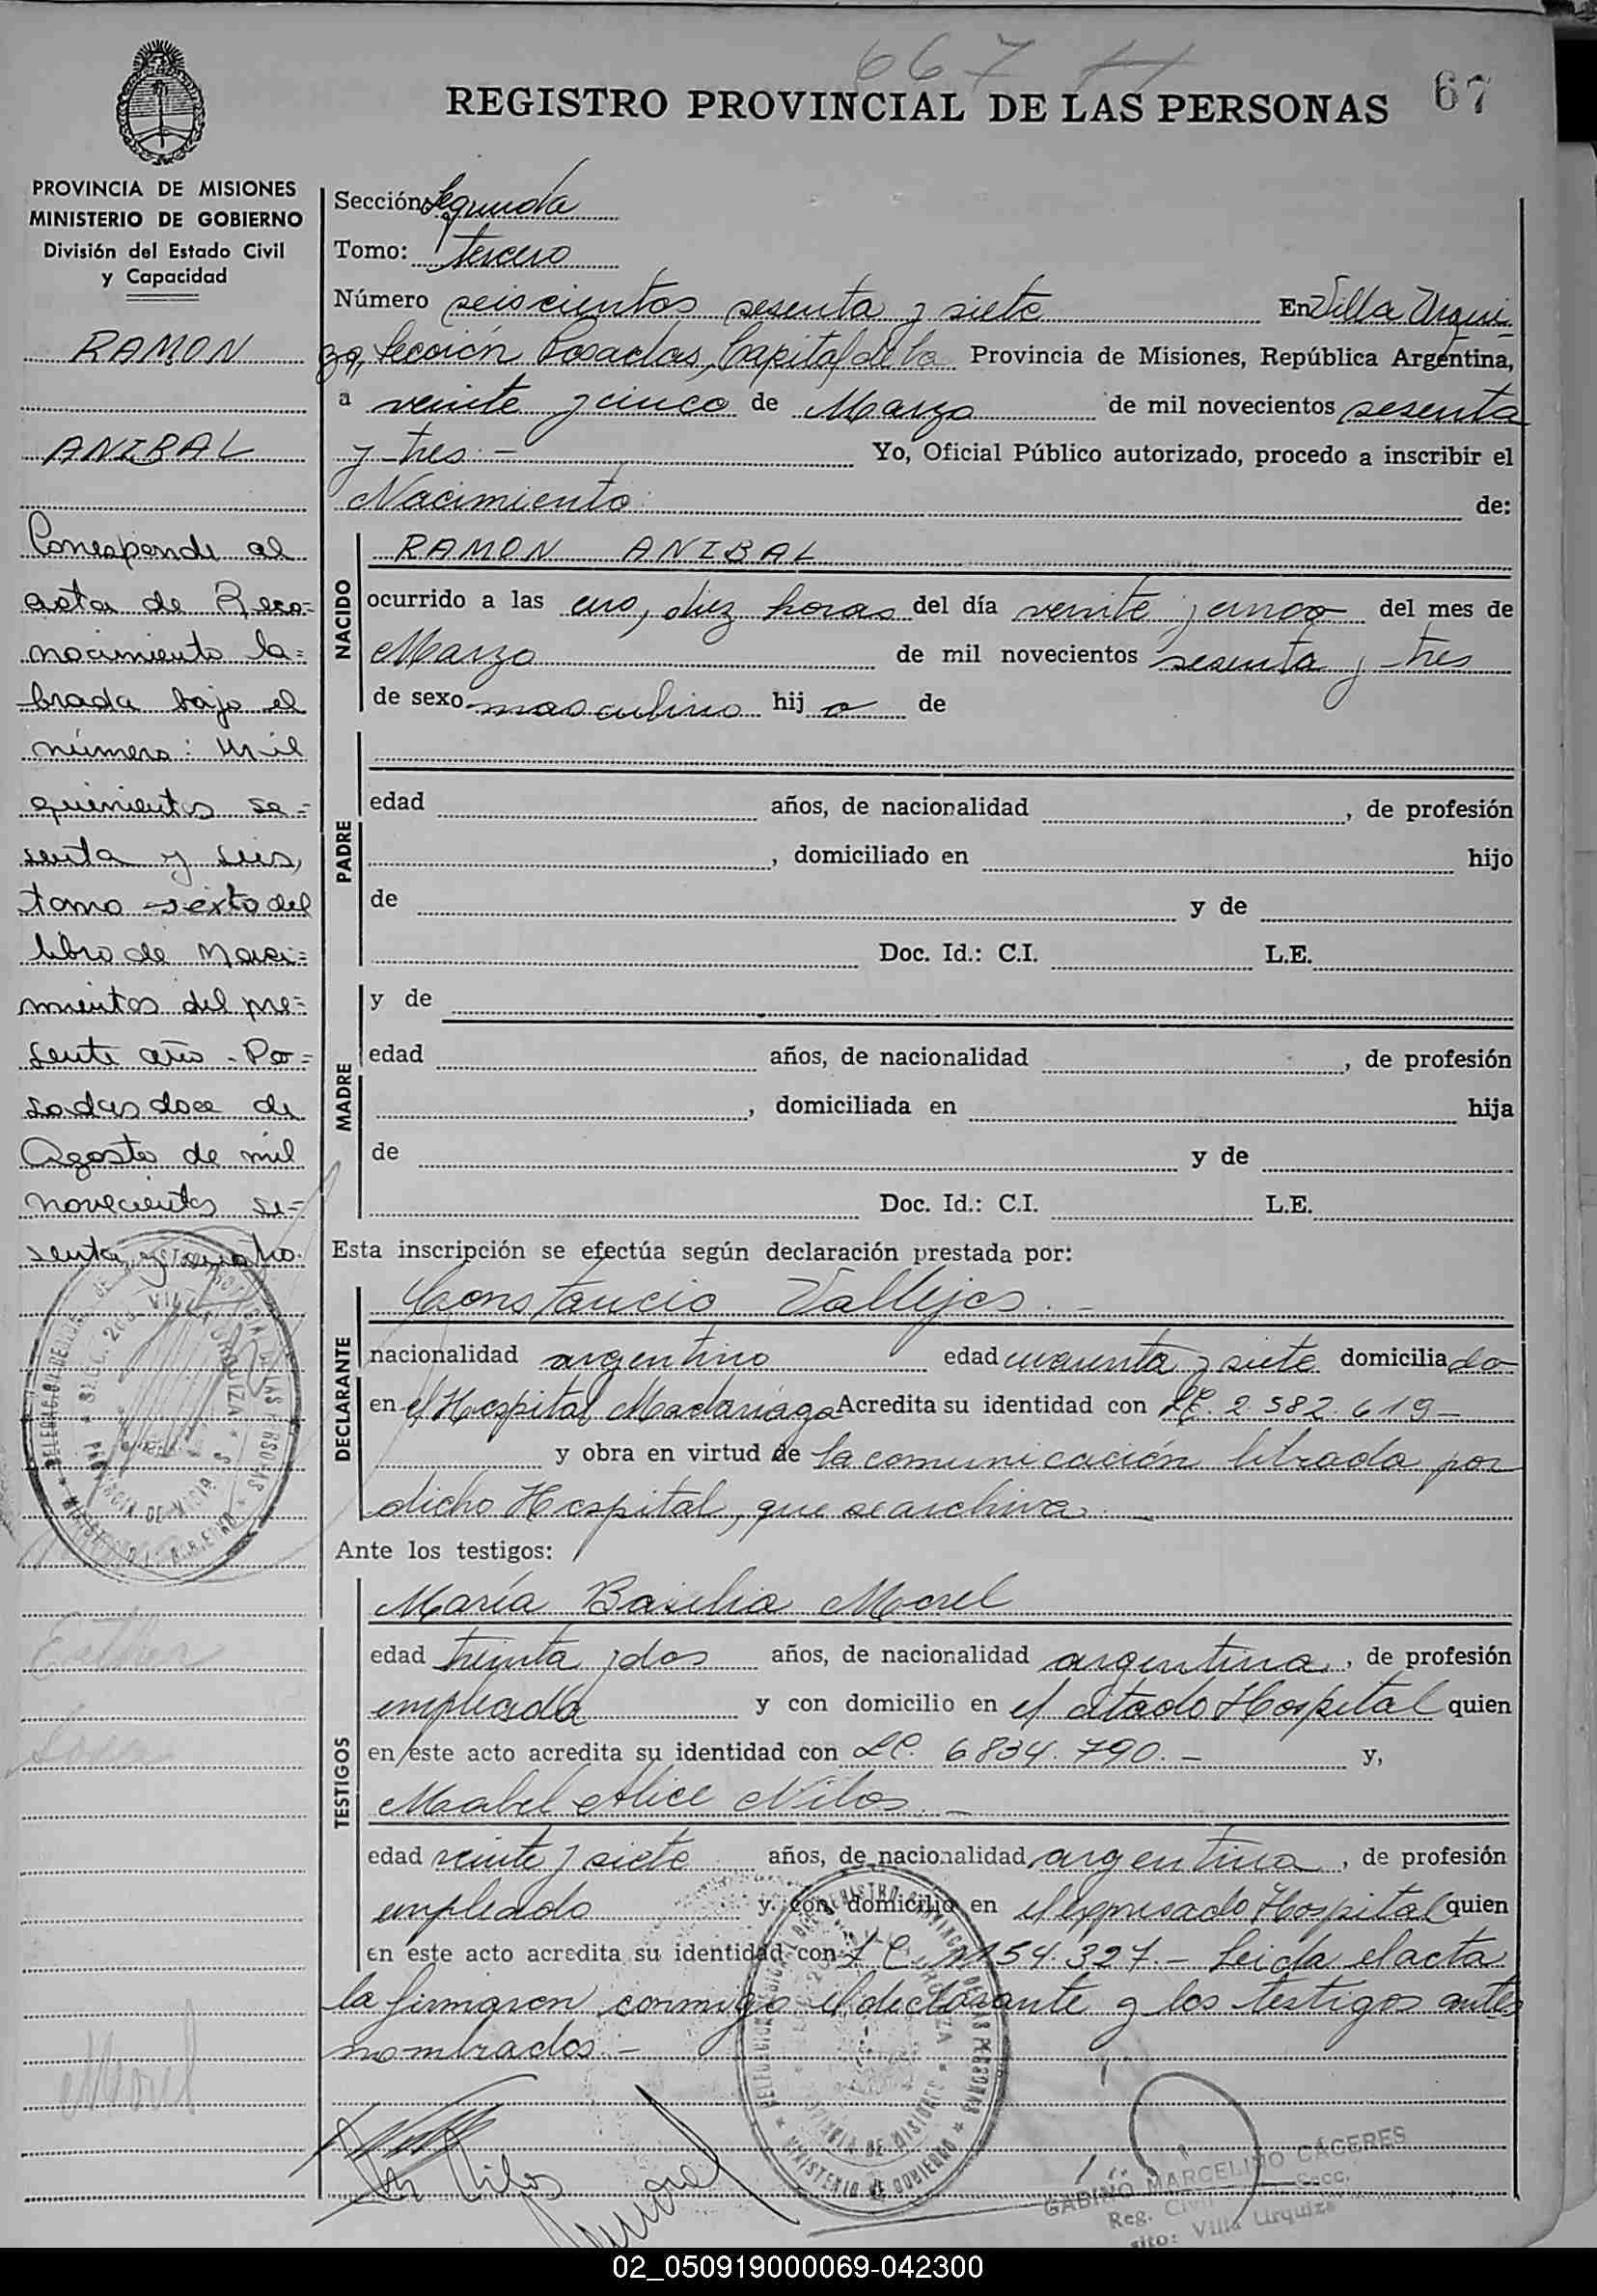 667
67
REGISTRO PROVINCIAL DE LAS PERSONAS
PROVINCIA DE MISIONES
MINISTERIO DE GOBIERNO
División del Estado Civil
y Capacidad
RAMON
ANIBAL
Corresponde al
acta de Reco=
nocimiento la=
brada bajo el
número: Mil
quinientos se=
senta y seis,
tomo sexto del
libro de Naci=
mientos del pre=
sente año - Po=
sadas doce de
Agosto de mil
novecientos se=
senta y cuatro.
Esther
Sosa
Morel
Sección Segunda
Tomo: tercero
Número seiscientos sesenta y siete En Villa Urqui-
za, Sección Posadas, Capital de la Provincia de Misiones, República Argentina,
a veinte y cinco de Marzo de mil novecientos sesenta
y tres.- Yo, Oficial Público autorizado, procedo a inscribir el
Nacimiento de:
NACIDO
RAMON ANIBAL
ocurrido a las cero, diez horas del día veinte y cinco del mes de
Marzo de mil novecientos sesenta y tres
de sexo masculino hij o de
PADRE
edad años, de nacionalidad , de profesión
, domiciliado en hijo
de y de
Doc. Id.: C.I. L.E.
MADRE
y de
edad años, de nacionalidad , de profesión
, domiciliada en hija
de y de
Doc. Id.: C.I. L.E.
Esta inscripción se efectúa según declaración prestada por:
DECLARANTE
Constancio Vallejos.-
nacionalidad argentino edad cuarenta y siete domicilia do
en el Hospital Madariaga Acredita su identidad con LE. 2.582.619-
y obra en virtud de la comunicación librada por
dicho Hospital, que se archiva.-
Ante los testigos:
TESTIGOS
María Basilia Morel
edad treinta y dos años, de nacionalidad argentina, de profesión
empleada y con domicilio en el citado Hospital quien
en este acto acredita su identidad con LC. 6834.790.- y,
Mabel Alice Nilos.-
edad veinte y siete años, de nacionalidad argentina, de profesión
empleado y con domicilio en el expresado Hospital quien
en este acto acredita su identidad con L C. 1154.327.- Leida el acta
la firmaron conmigo el declarante y los testigos antes
nombrados.-
Nilos
Morel
GABINO MARCELINO CACERES
Reg. Civil Secc.
sito: Villa Urquiza
02_050919000069-042300